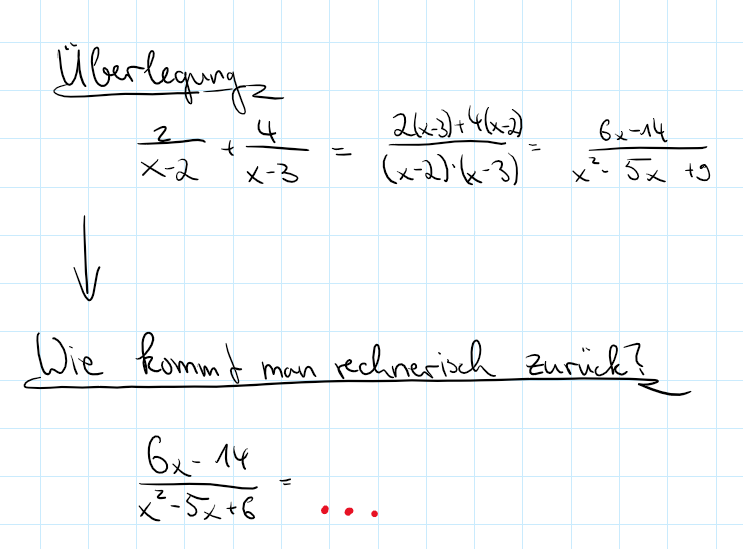 Überlegung
2/(x-2) + 4/(x-3) = (2(x-3)+4(x-2))/((x-2)·(x-3)) = (6x-14)/(x²-5x+9)
Wie kommt man rechnerisch zurück?
(6x-14)/(x²-5x+6) = ...